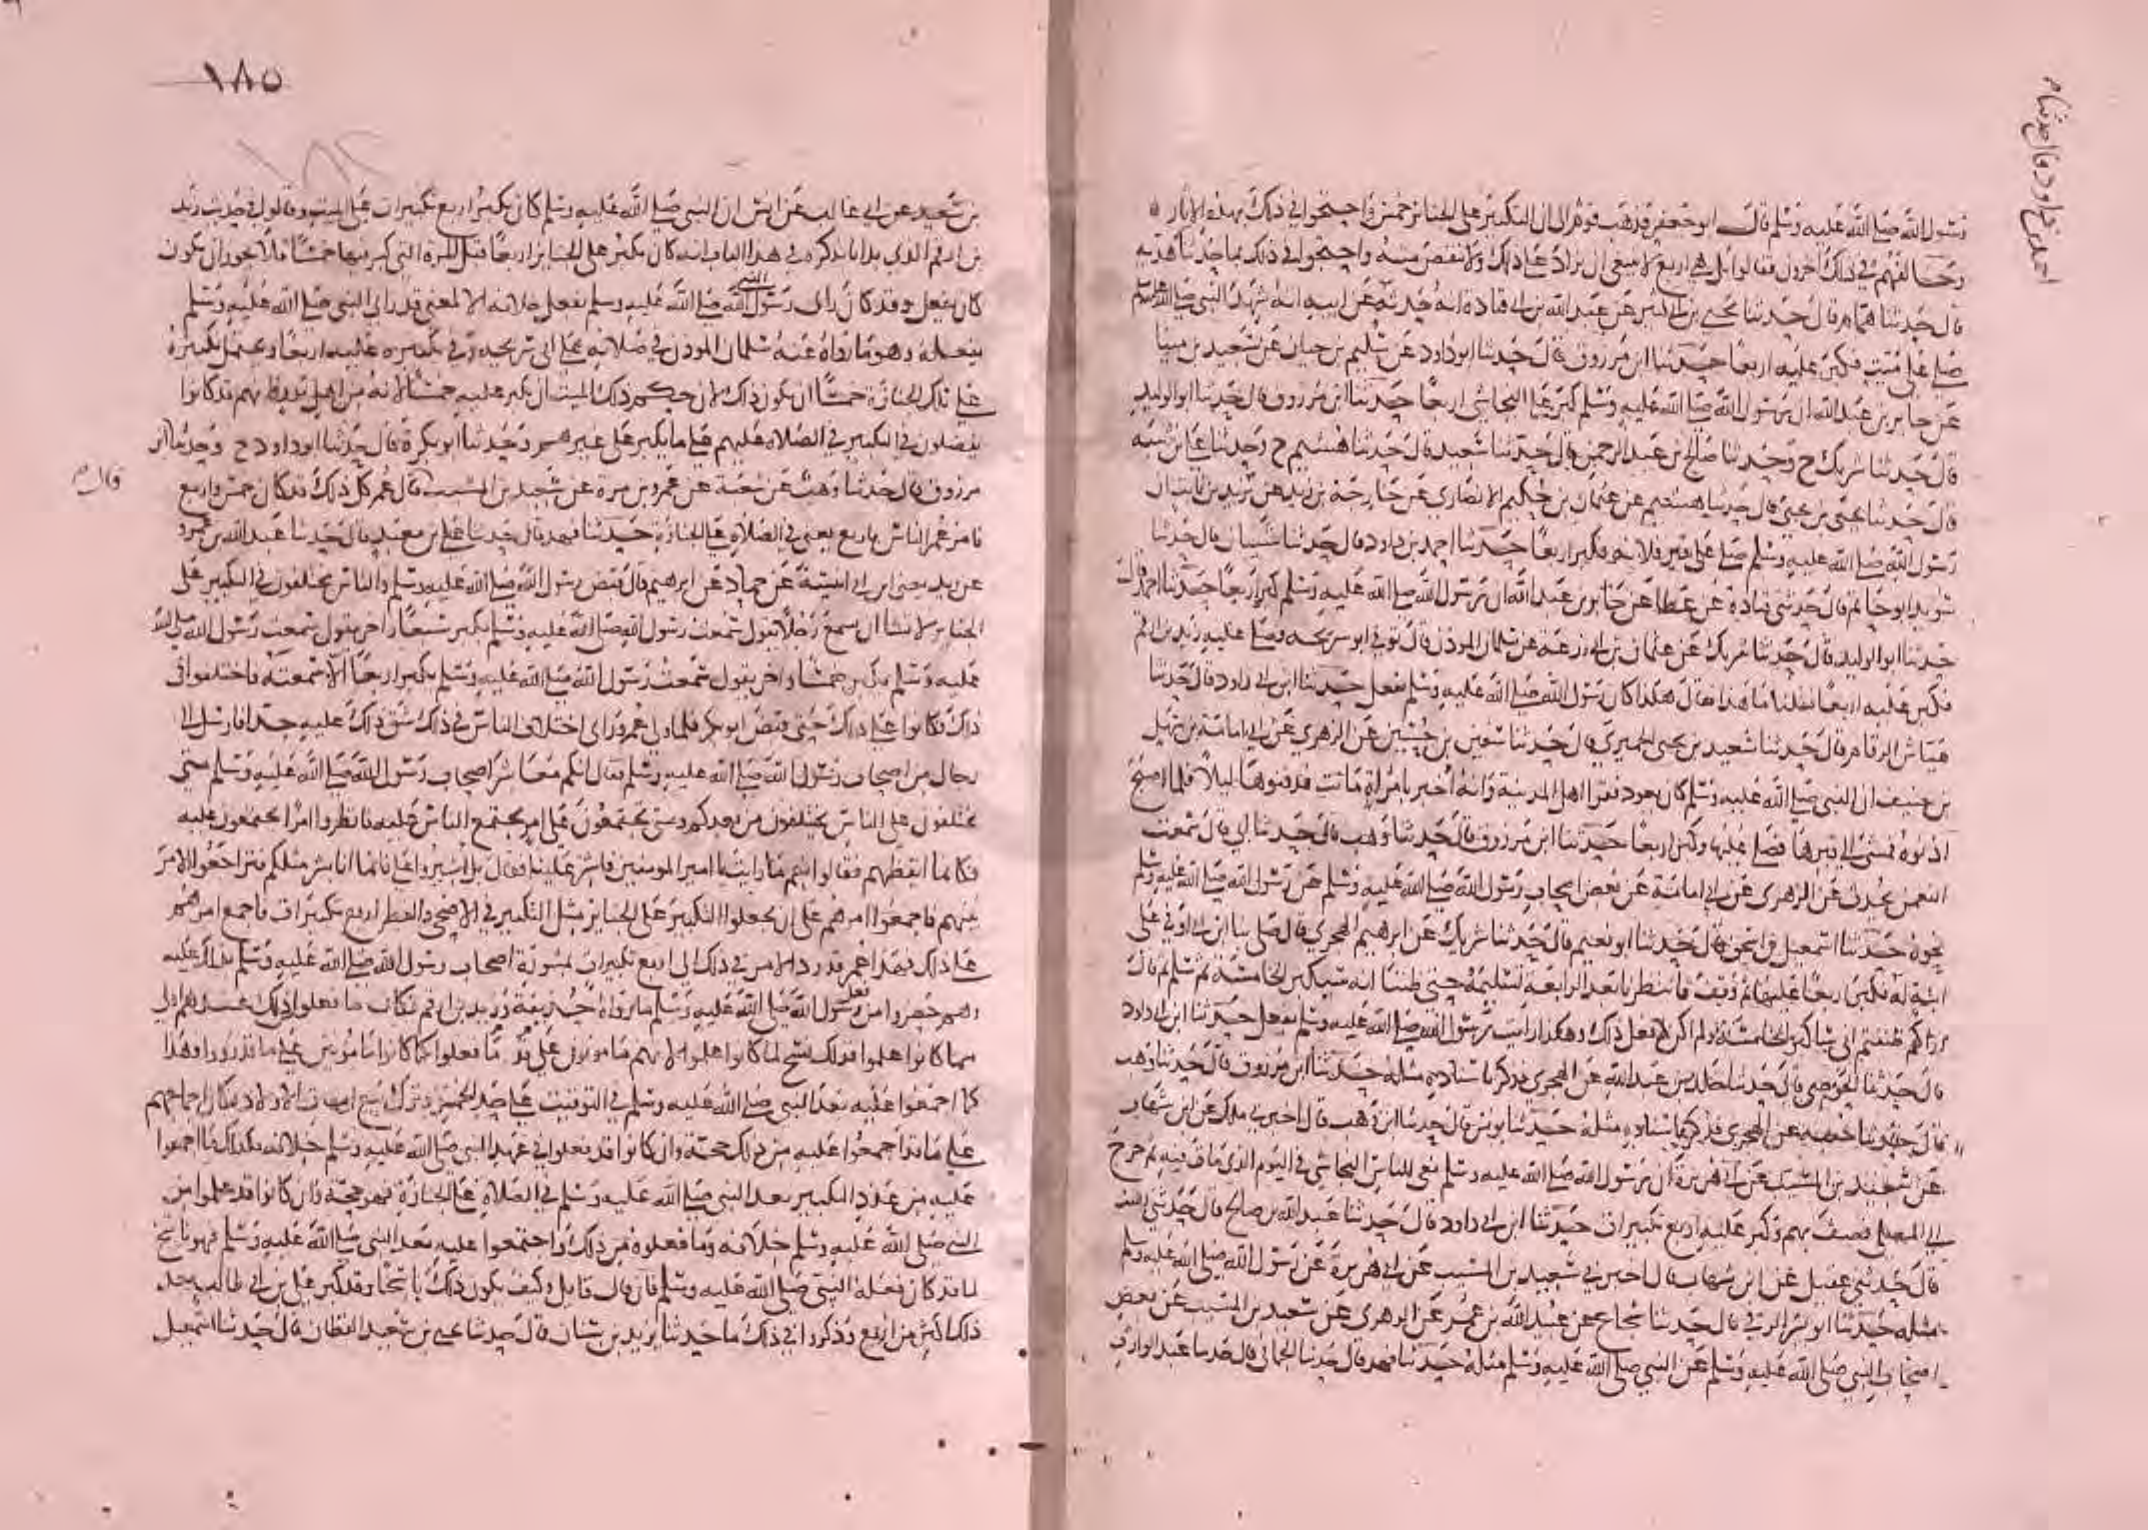 رسول الله صلى الله عليه وسلم قال ابو جعفر فذهب قوم الى ان التكبير على الجنائز خمس واحتجوا في ذلك بهذه الاثار
وخالفهم في ذلك اخرون فقالوا بل هي اربع لا ينبغي ان يزاد على ذلك ولا ينقص منه واحتجوا في ذلك بما حدثنا
قال حدثنا همام قال حدثنا يحيى بن ابي كثير عن عبد الله بن ابي قتادة انه حدثه عن ابيه انه شهد النبي صلى الله عليه وسلم
صلى على ميت فكبر عليه اربعا حدثنا ابن مرزوق قال حدثنا ابو داود عن سليم بن حيان عن سعيد بن مينا
عن جابر بن عبد الله ان رسول الله صلى الله عليه وسلم كبر على النجاشي اربعا حدثنا ابن مرزوق قال حدثنا ابو الوليد
قال حدثنا شريك ح وحدثنا صالح بن عبد الرحمن قال حدثنا سعيد قال حدثنا هشيم ح وحدثنا علي بن شيبه
قال حدثنا يحيى بن يحيى قال حدثنا هشيم عن عثمان بن حكيم الانصاري عن خارجة بن زيد عن يزيد بن ثابت ان
رسول الله صلى الله عليه وسلم صلى على قبر فلانه فكبر اربعا حدثنا احمد بن داود قال حدثنا شيبان قال حدثنا
سويد ابو حاتم قال حدثني قتادة عن عطا عن جابر بن عبد الله ان رسول الله صلى الله عليه وسلم كبر اربعا حدثنا احمد قال
حدثنا ابو الوليد قال حدثنا شريك عن عثمان بن ابي زرعة عن سلمان المؤذن قال توفي ابو سريحه فصلى عليه زيد بن ارقم
فكبر عليه اربعا فقلنا ما هذا فقال هكذا كان رسول الله صلى الله عليه وسلم يفعل حدثنا ابن ابي داود قال حدثنا
عياش الرقام قال حدثنا سعيد بن يحيى الحميري قال حدثنا سفين بن حسين عن الزهري عن ابي امامة بن سهل
بن حنيف ان النبي صلى الله عليه وسلم كان يعود فقرا اهل المدينة وانه اخبر بامراة ماتت فدفنوها ليلا فلما اصبح
اذنوه فمشى الى قبرها فصلى عليها وكبر اربعا حدثنا ابن مرزوق قال حدثنا وهب قال حدثنا ابي قال سمعت
النعمن يحدث عن الزهري عن ابي امامة عن بعض اصحاب رسول الله صلى الله عليه وسلم عن رسول الله صلى الله عليه وسلم
نحوه حدثنا اسمعيل بن اسحق قال حدثنا ابو نعيم قال حدثنا شريك عن ابرهيم الهجري قال صلى بنا ابن ابي اوفى على
ابنة له فكبر اربعا عليها ثم وقف فانتظرنا بعد الرابعة تسليمه حتى ظننا انه سيكبر الخامسة ثم سلم ثم قال
اراكم ظننتم اني ساكبر الخامسة ولم اكن لافعل ذلك وهكذا رايت رسول الله صلى الله عليه وسلم يفعل حدثنا ابن ابي داود
قال حدثنا الحوضي قال حدثنا خالد بن عبد الله عن الهجري فذكر باسناده مثله حدثنا ابن مرزوق قال حدثنا وهب
قال حدثنا شعبه عن الهجري فذكر باسناده مثله حدثنا يونس قال حدثنا ابن وهب قال اخبرني ملك عن ابن شهاب
عن سعيد بن المسيب عن ابي هريرة ان رسول الله صلى الله عليه وسلم نعى للناس النجاشي في اليوم الذي مات فيه ثم خرج
الى المصلى فصف بهم وكبر عليه اربع تكبيرات حدثنا ابن ابي داود قال حدثنا عبد الله بن صالح قال حدثني الليث
قال حدثني عقيل عن ابن شهاب قال اخبرني سعيد بن المسيب عن ابي هريرة عن رسول الله صلى الله عليه وسلم
مثله حدثنا ابو بشر الرقي قال حدثنا شجاع عن عبيد الله بن عمر عن الزهري عن سعيد بن المسيب عن بعض
اصحاب النبي صلى الله عليه وسلم عن النبي صلى الله عليه وسلم مثله حدثنا فهد قال حدثنا الحماني قال حدثنا عبد الوارث
١٨٥
بن سعيد عن ابي غالب عن انس ان النبي صلى الله عليه وسلم كان يكبر اربع تكبيرات على الميت وقالوا في حديث زيد
بن ارقم الذي بدانا بذكره في هذا الباب انه كان يكبر على الجنائز اربعا قبل المرة التي كبر فيها خمسا فلا يجوز ان يكون
كان يفعل وقد كان راى رسول الله صلى الله عليه وسلم يفعل خلافه الا لمعنى قد راى النبي صلى الله عليه وسلم
يفعله وهو ما رواه عنه سلمان المؤذن في صلاته على ابي سريحه وفي تكبيره عليه اربعا ويحتمل تكبيره
على تلك الجنازة خمسا ان يكون ذلك لان حكم ذلك الميت ان يكبر عليه خمسا لانه من اهل بدر فانهم قد كانوا
يفضلون في التكبير في الصلاه عليهم على ما يكبر على غيرهم وحدثنا ابو بكرة قال حدثنا ابو داود ح وحدثنا ابن
مرزوق قال حدثنا وهب عن شعبة عن عمرو بن مرة عن سعيد بن المسيب قال عمر كل ذلك قد كان خمس واربع
قال
فامر عمر الناس باربع يعني في الصلاه على الجنازة حدثنا فهد قال حدثنا علي بن معبد قال حدثنا عبيد الله بن عمرو
عن زيد يعني ابن ابي انيسة عن حماد عن ابرهيم قال قبض رسول الله صلى الله عليه وسلم والناس مختلفون في التكبير على
الجنائز لا تشا ان تسمع رجلا يقول سمعت رسول الله صلى الله عليه وسلم يكبر سبعا واخر يقول سمعت رسول الله صلى الله
عليه وسلم يكبر خمسا واخر يقول سمعت رسول الله صلى الله عليه وسلم يكبر اربعا الا سمعته فاختلفوا في
ذلك فكانوا على ذلك حتى قبض ابو بكر فلما ولي عمر وراى اختلاف الناس في ذلك شق ذلك عليه جدا فارسل الى
رجال من اصحاب رسول الله صلى الله عليه وسلم فقال انكم معاشر اصحاب رسول الله صلى الله عليه وسلم متى
تختلفون على الناس يختلفون من بعدكم ومتى تجتمعون على امر يجتمع الناس عليه فانظروا امرا تجتمعون عليه
فكانما ايقظهم فقالوا نعم ما رايت يا امير المومنين فاشر علينا فقال بل اشيروا علي فانما انا بشر مثلكم فتراجعوا الامر
بينهم فاجمعوا امرهم على ان يجعلوا التكبير على الجنائز مثل التكبير في الاضحى والفطر اربع تكبيرات فاجمع امرهم
على ذلك فهذا عمر قد رد الامر في ذلك الى اربع تكبيرات بمشورة اصحاب رسول الله صلى الله عليه وسلم بذلك عليه
وهم حضروا من فعل رسول الله صلى الله عليه وسلم ما رواه حذيفة وزيد بن ارقم فكان ما فعلوا من ذلك عندهم اولى
مما كانوا علموا فذلك نسخ لما كانوا علموا لانهم مامونون على ما فعلوا كما كانوا مامونين على ما قد رووا وهذا
كما اجمعوا عليه بعد النبي صلى الله عليه وسلم في التوقيت على حد الخمر وترك بيع امهات الاولاد فكان اجماعهم
على ما قد اجمعوا عليه من ذلك حجة وان كانوا قد فعلوا في عهد النبي صلى الله عليه وسلم خلافه فكذلك ما اجمعوا
عليه من عدد التكبير بعد النبي صلى الله عليه وسلم في الصلاة على الجنازة فهو حجة وان كانوا قد علموا من
النبي صلى الله عليه وسلم خلافه وما فعلوه من ذلك واجتمعوا عليه بعد النبي صلى الله عليه وسلم فهو ناسخ
لما قد كان فعله النبي صلى الله عليه وسلم فان قال قايل وكيف يكون ذلك ناسخا وقد كبر علي بن ابي طالب بعد
ذلك اكثر من اربع وذكروا في ذلك ما حدثنا يزيد بن سنان قال حدثنا يحيى بن سعيد القطان قال حدثنا اسمعيل